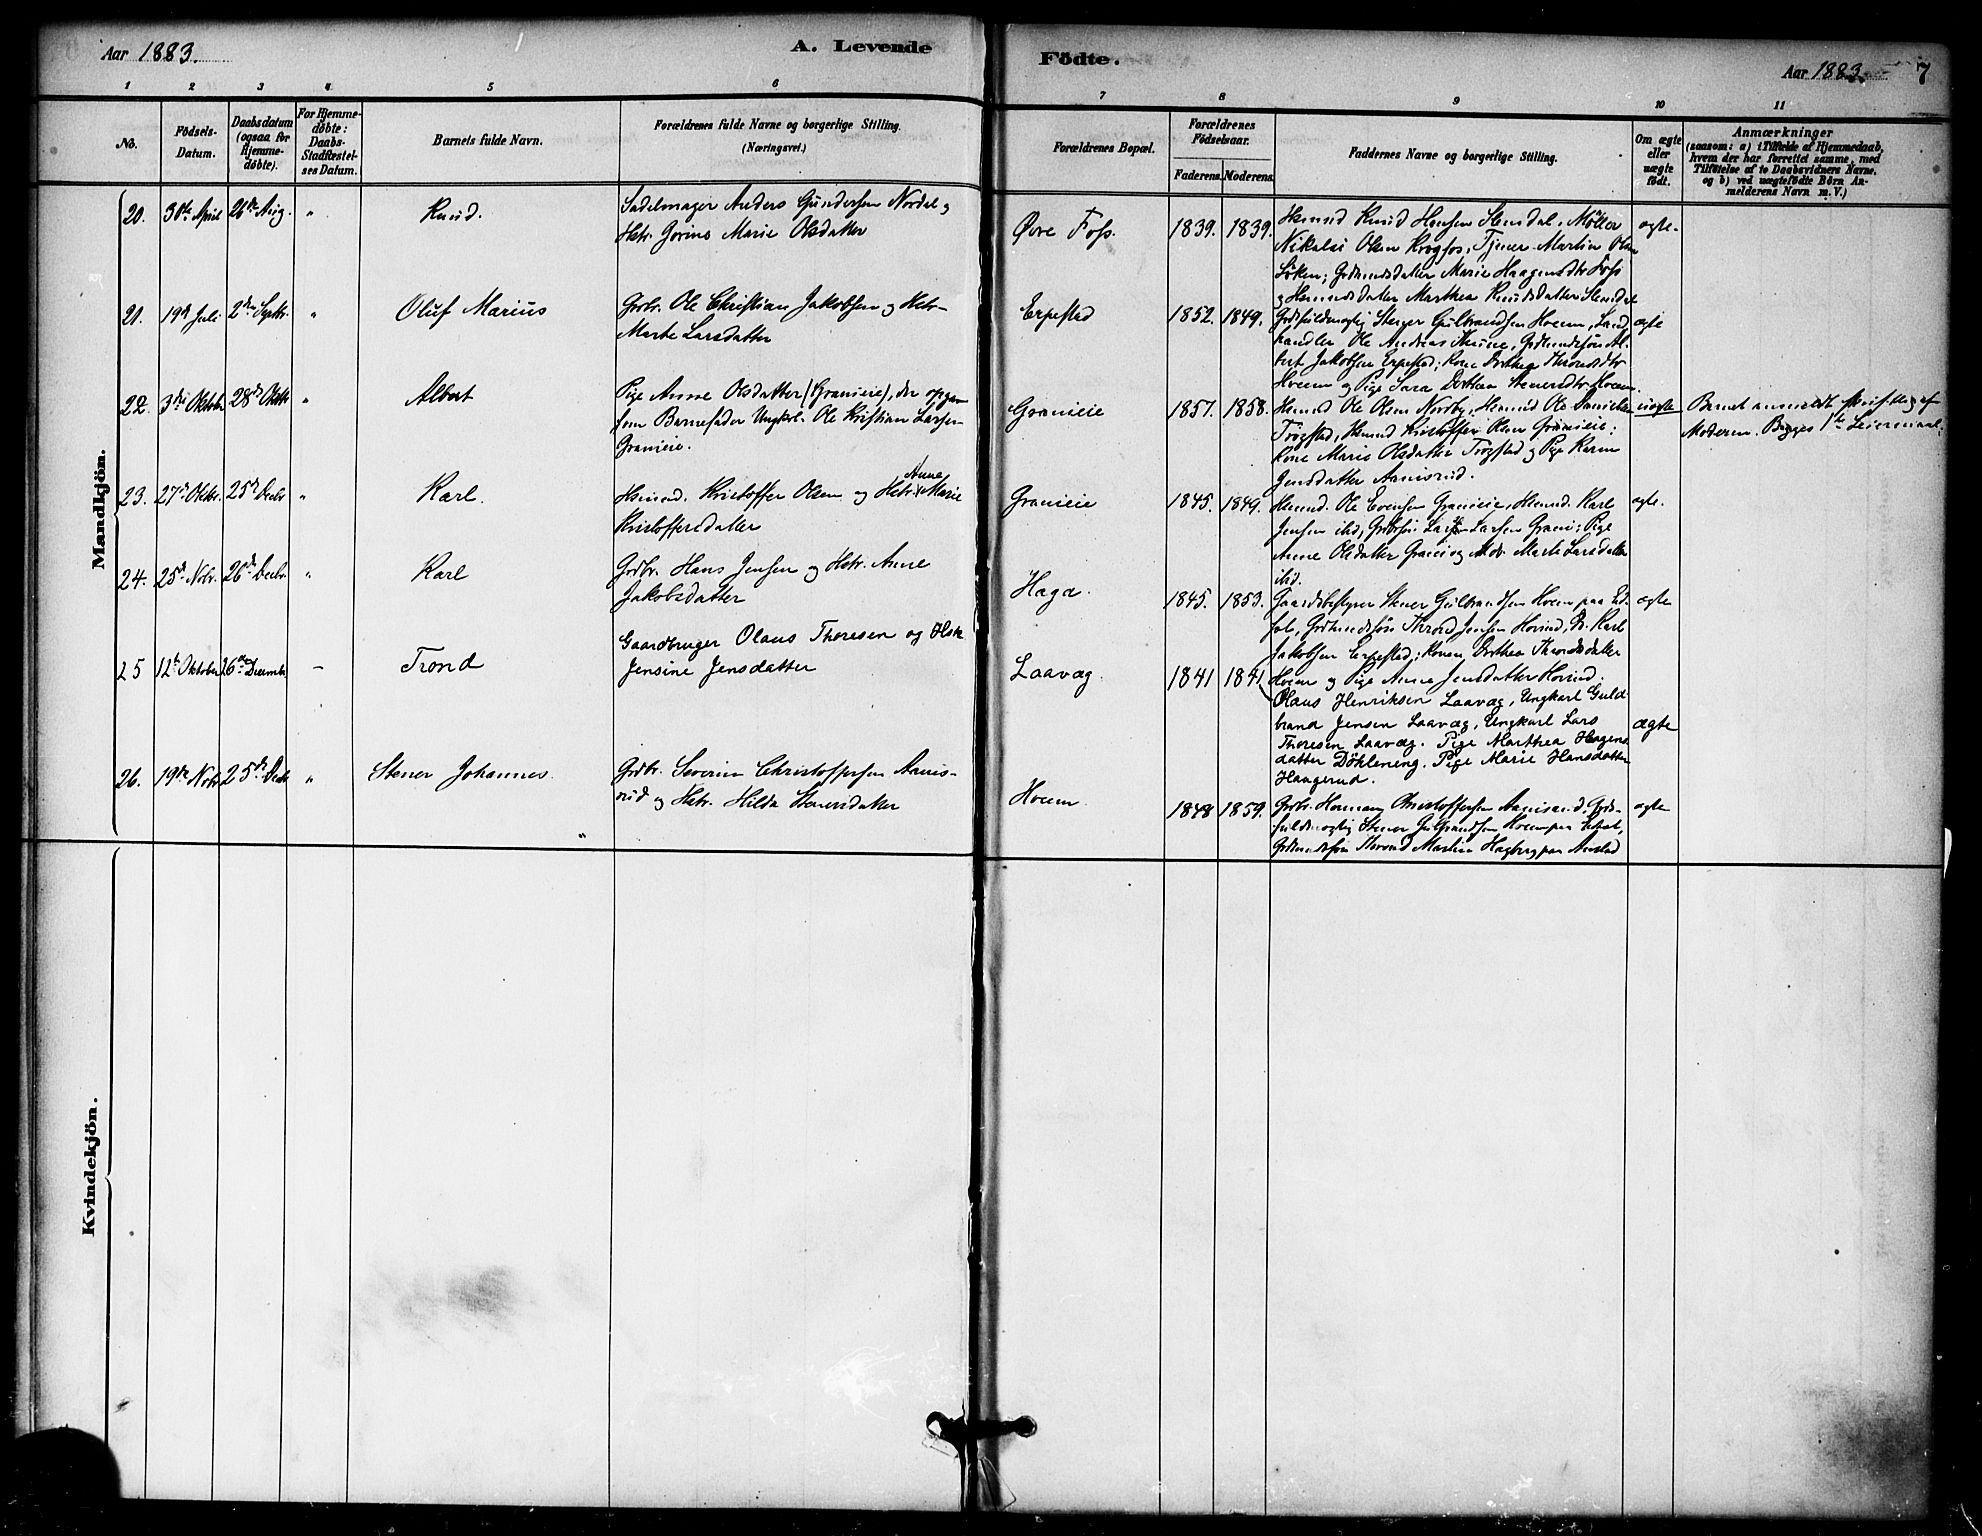 Aar 1883.
A. Levende
Födte.
Aar 1883.
7
1 2 3 4 5 6 7 8 9 10 11
No.
Födsels-
Datum.
Daabsdatum
(ogsaa for
Hjemme-
döbte).
For Hjemme-
döbte:
Daabs-
Stadfæstel-
ses Datum.
Barnets fulde Navn.
Forældrenes fulde Navne og borgerlige Stilling.
(Næringsvei.)
Forældrenes Bopæl.
Forældrenes
Födselsaar.
Faderens. Moderens.
Faddernes Navne og borgerlige Stilling.
Om ægte
eller
uægte
födt.
Anmærkninger
(saasom: a) i Tilfælde af Hjemmedaab,
hvem der har forrettet samme, med
Tilföielse af to Daabsvidners Navne,
og b) ved uægtefödte Börn An-
melderens Navn m. V.)
Mandkjön.
20. 30te April 26de Aug. " Knud.
Sadelmager Anders Gundersen Nordal og
Hstr. Gorine Marie Olsdatter
Øvre Foss. 1839. 1839.
Husmd Knud Hansen Stendal, Møller
Nikolai Olsen Krogfos, Tjener Martin Olsen
Løken; Grdmdsdatter Marie Haagensdtr Foss
og Husmdsdatter Marthea Knudsdatter Stendal
ægte.
21. 19de Juli 2den Septbr. " Oluf Marius
Grbr. Ole Christian Jakobsen og Hstr.
Marte Larsdatter
Erpestad 1852. 1849.
Grdfuldmægtig Stener Gulbrandsen Hoem, Land
handler Ole Andreas Skune, Grdmandssøn Al-
bert Jakobsen Erpestad; Kone Dorthea Throndsdtr
Hoem og Pige Sara Dorthea Stenersdtr Hoem.
ægte
22. 3die Oktober 28de Oktbr " Albert
Pige Anne Olsdatter (Granieie), der opgav
som Barnefader Ungkrl. Ole Kristian Larsen
Granieie.
Granieie 1857. 1858.
Husmd Ole Olsen Nordby, Husmd Ole Danielsen
Trøgstad, Husmd Kristoffer Olsen Granieie;
Kone Marie Olsdatter Trøgstad og Pige Karen
Jensdatter Aanisrud.
uægte
Barnet anmeldt skriftlig af
Moderen. Begges 1ste Leiermaal.
23. 27de Oktbr. 25de Decbr " Karl.
Husmd. Kristoffer Olsen og Hstr. Anne Marie
Kristoffersdatter
Granieie 1845. 1849.
Husmd. Ole Evensen Granieie, Husmd. Karl
Jensen ibid, Grdbrsøn Lars Larsen Grani; Pige
Anne Olsdatter Grani og Mdr Marte Larsdatter
ibid.
ægte.
24. 25de Novbr. 26de Decbr. " Karl
Grdbr. Hans Jensen og Hstr. Anne
Jakobsdatter
Haga. 1845. 1853.
Gaardsbestyrer Stener Gulbrandsen Hoem paa Eid-
fos, Grdmandssøn Thrond Jensen Hovind, Do. Karl
Jakobsen Erpestad; Konen Dorthea Throndsdatter
Hoem og Pige Anne Jensdatter Hovind.
ægte
25 12te Oktober 26de December – Trond
Gaardbruger Olaus Thoresen og Hstr
Jensine Jensdatter
Laavæg. 1841 1841
Olaus Henriksen Laavæg, Ungkarl Guld
brand Jensen Laavæg, Ungkarl Lars
Thoresen Laavæg. Pige Marthea Hagens
datter Döhleneng. Pige Marie Hansdatter
Haagerud.
ægte
26. 19de Novbr 25de Decbr " Stener Johannes.
Grdbr. Severin Christoffersen Aanis-
rud og Hstr. Hilda Stenersdatter
Hoem 1848 1859.
Grdbr. Herman Christoffersen Aanisrud, Grds-
fuldmægtig Stener Gulbrandsen Hoem paa Eidfos,
Grdmandssøn Thrond Martin Hagberg paa Austad
ægte
"
Kvindekjön.